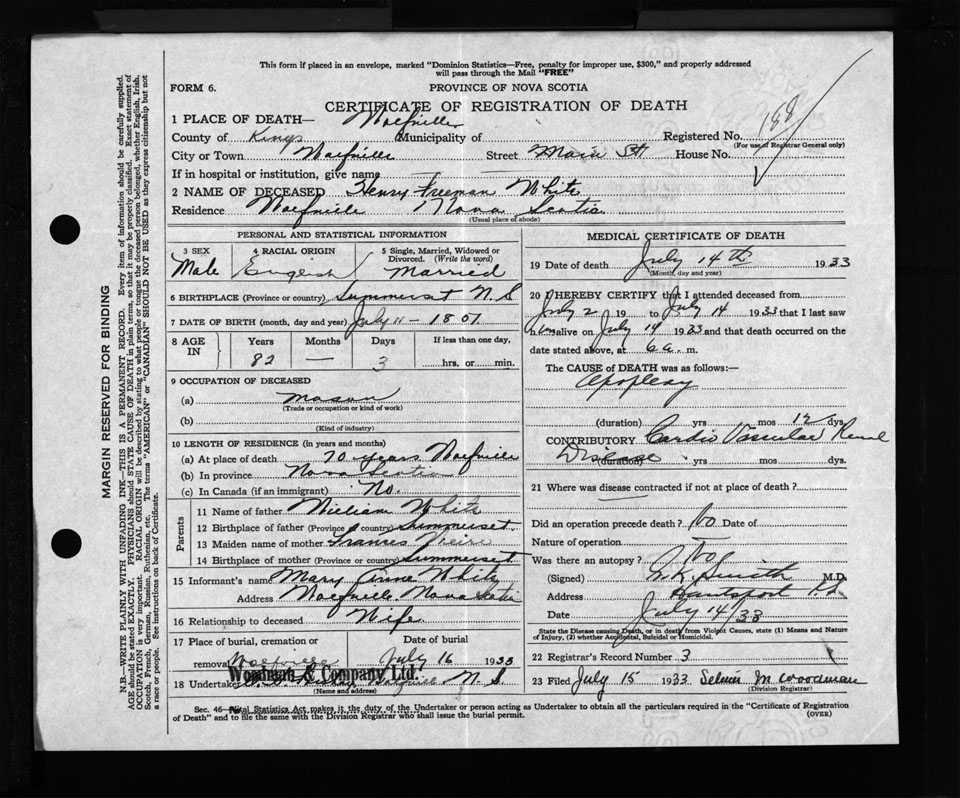 This form if placed in an envelope, marked "Dominion Statistics—Free, penalty for improper use, $300," and properly addressed
will pass through the Mail "FREE"
FORM 6.
PROVINCE OF NOVA SCOTIA
CERTIFICATE OF REGISTRATION OF DEATH
1 PLACE OF DEATH— Wolfville
County of Kings Municipality of Registered No. 188
(For use of Registrar General only)
City or Town Wolfville Street Main St House No.
If in hospital or institution, give name
2 NAME OF DECEASED Henry Freeman White
Residence Wolfville Nova Scotia
(Usual place of abode)
PERSONAL AND STATISTICAL INFORMATION
3 SEX 4 RACIAL ORIGIN 5 Single, Married, Widowed or Divorced. (Write the word)
Male English Married
6 BIRTHPLACE (Province or country) Summerset N.S
7 DATE OF BIRTH (month, day and year) July 11 – 1851
8 AGE IN Years Months Days If less than one day,
82 — 3 hrs. or min.
9 OCCUPATION OF DECEASED
(a) Mason
(Trade or occupation or kind of work)
(b)
(Kind of industry)
10 LENGTH OF RESIDENCE (in years and months)
(a) At place of death 70 years Wolfville
(b) In province Nova Scotia
(c) In Canada (if an immigrant) No.
Parents
11 Name of father William White
12 Birthplace of father (Province or country) Summerset
13 Maiden name of mother Frances
14 Birthplace of mother (Province or country) Summerset
15 Informant's name Mary Anne White
Address Wolfville Nova Scotia
16 Relationship to deceased Wife
17 Place of burial, cremation or Date of burial
removal Wolfville July 16 1933
Woodman & Company, Ltd.
18 Undertaker Wolfville N S
(Name and address)
MEDICAL CERTIFICATE OF DEATH
19 Date of death July 14th 1933
(Month, day and year)
20 I HEREBY CERTIFY that I attended deceased from
July 2 19 to July 14 1933 that I last saw
him alive on July 14 1933 and that death occurred on
date stated above, at 6 a. m.
The CAUSE of DEATH was as follows:—
Apoplexy
(duration) yrs mos 12 dys.
CONTRIBUTORY Cardio Vascular Renal
Disease
(duration) yrs mos dys.
21 Where was disease contracted if not at place of death?
Did an operation precede death? No Date of
Nature of operation
Was there an autopsy? No
(Signed) Smith M.D.
Address Hantsport
Date July 14/33
State the Disease causing Death, or in death from Violent Causes, state (1) Means and Nature
of Injury, (2) whether Accidental, Suicidal or Homicidal.
22 Registrar's Record Number 3
23 Filed July 15 1933 Selmer M Woodman
(Division Registrar)
Sec. 46—Vital Statistics Act makes it the duty of the Undertaker or person acting as Undertaker to obtain all the particulars required in the "Certificate of Registration
of Death" and to file the same with the Division Registrar who shall issue the burial permit. (OVER)
MARGIN RESERVED FOR BINDING
N.B.—WRITE PLAINLY WITH UNFADING INK—THIS IS A PERMANENT RECORD. Every item of information should be carefully supplied.
AGE should be stated EXACTLY. PHYSICIANS should STATE CAUSE OF DEATH in plain terms, so that it may be properly classified. Exact statement of
OCCUPATION is very important. RACIAL ORIGIN will be described by stating to what people or tongue the deceased person belonged, whether English, Irish,
Scotch, French, German, Russian, Ruthenian, etc. The terms "AMERICAN" or "CANADIAN" SHOULD NOT BE USED as they express citizenship but not
a race or people. See instructions on back of Certificate.